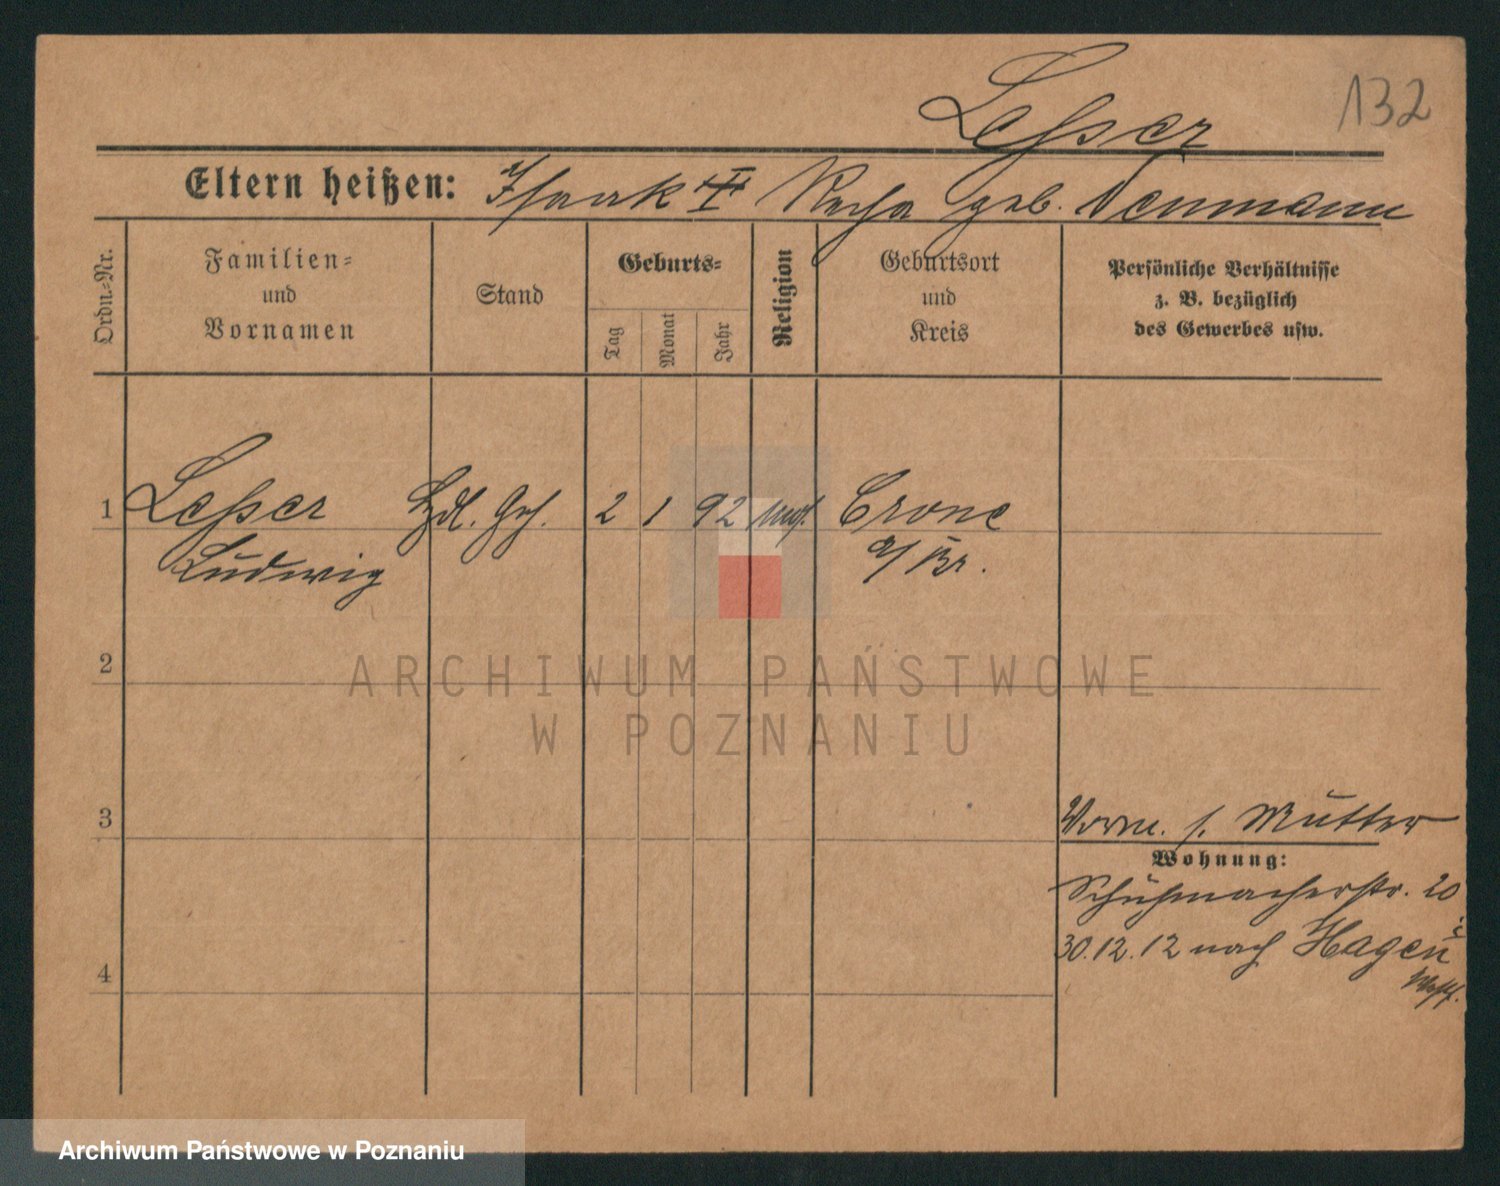 Lesser
132
Eltern heißen: Isaak Recha geb. Neumann
Ordn.-Nr.
Familien-
und
Vornamen
Stand
Geburts-
Tag
Monat
Jahr
Religion
Geburtsort
und
Kreis
Persönliche Verhältnisse
z. B. bezüglich
des Gewerbes usw.
1 Lesser Hdl. Geh. 2 1 92 mos. Crone
Ludwig a/ Br.
2
ARCHIWUM PAŃSTWOWE
W POZNANIU
3
Mutter
Wohnung:
Schuhmacherstr. 20
30.12.12 nach Hagen i
Westf.
4
Archiwum Państwowe w Poznaniu